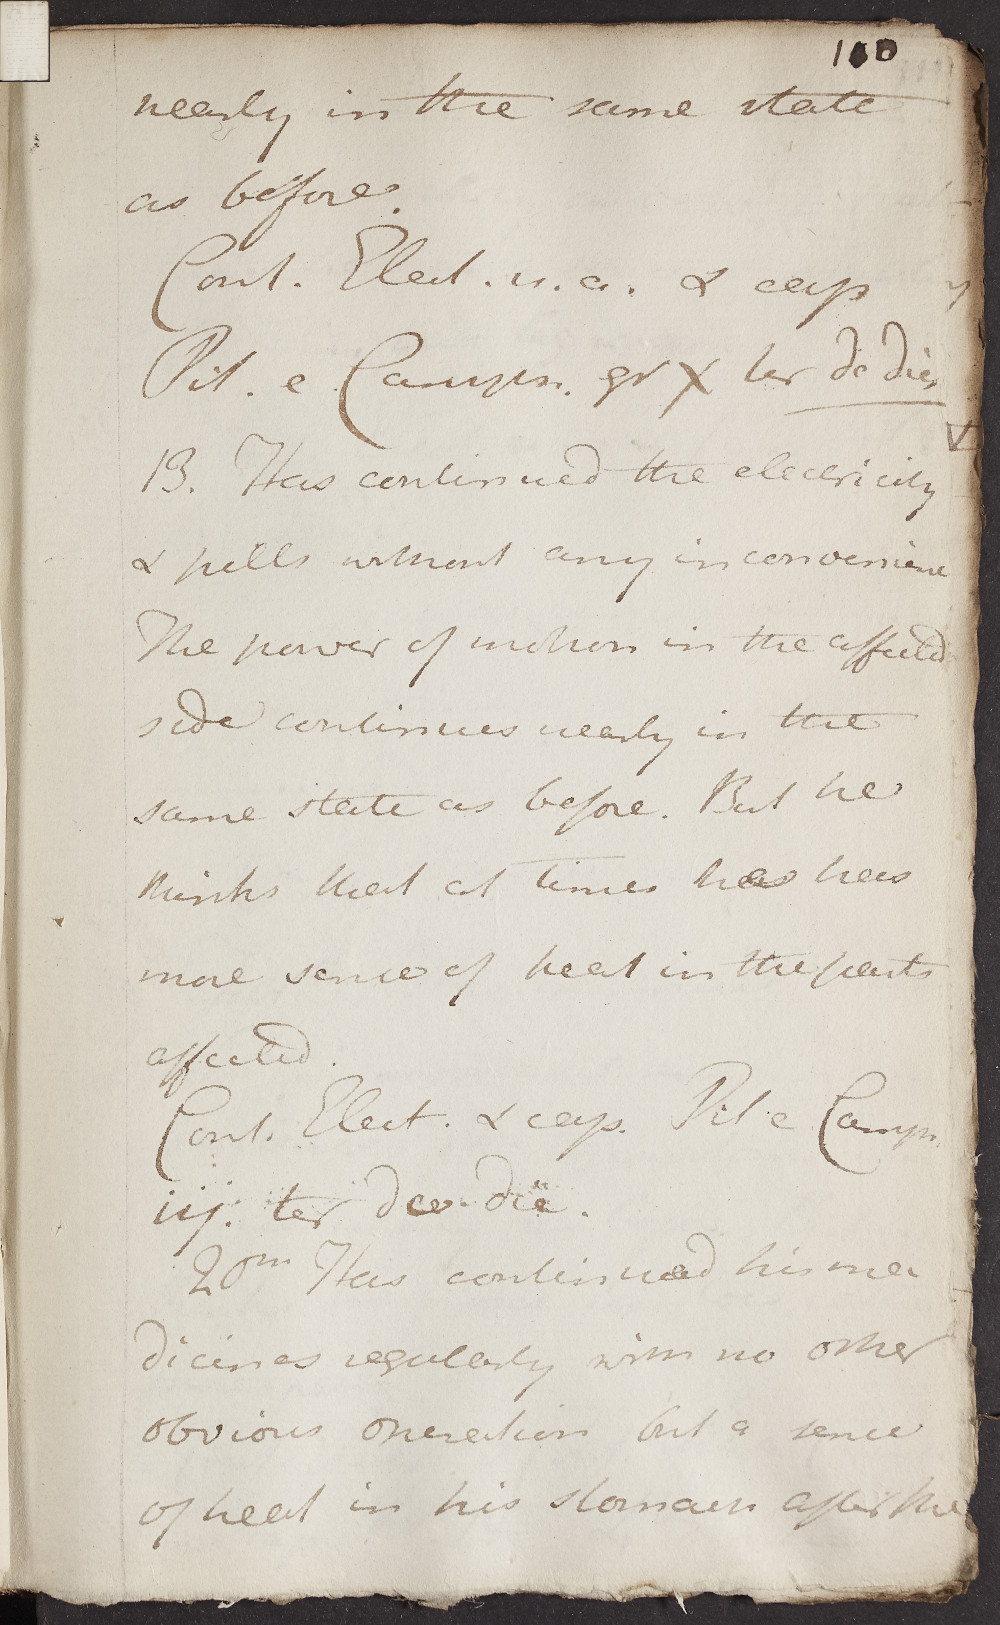 100
nearly in the same state
as before.
Cont. Elect. u. a. & cap
Pil. e Camph. gr X ter de die
13. Has continued the electricity
& pills without any inconvenience
The power of motion in the affected
side continues nearly in the
same state as before. But he
thinks that at times he has
more sense of heat in the parts
affected.
Cont. Elect. & cap. Pil e Camph.
iij. ter de die.
20m Has continued his me
dicines regularly with no other
obvious operation but a sense
of heat in his stomach after the